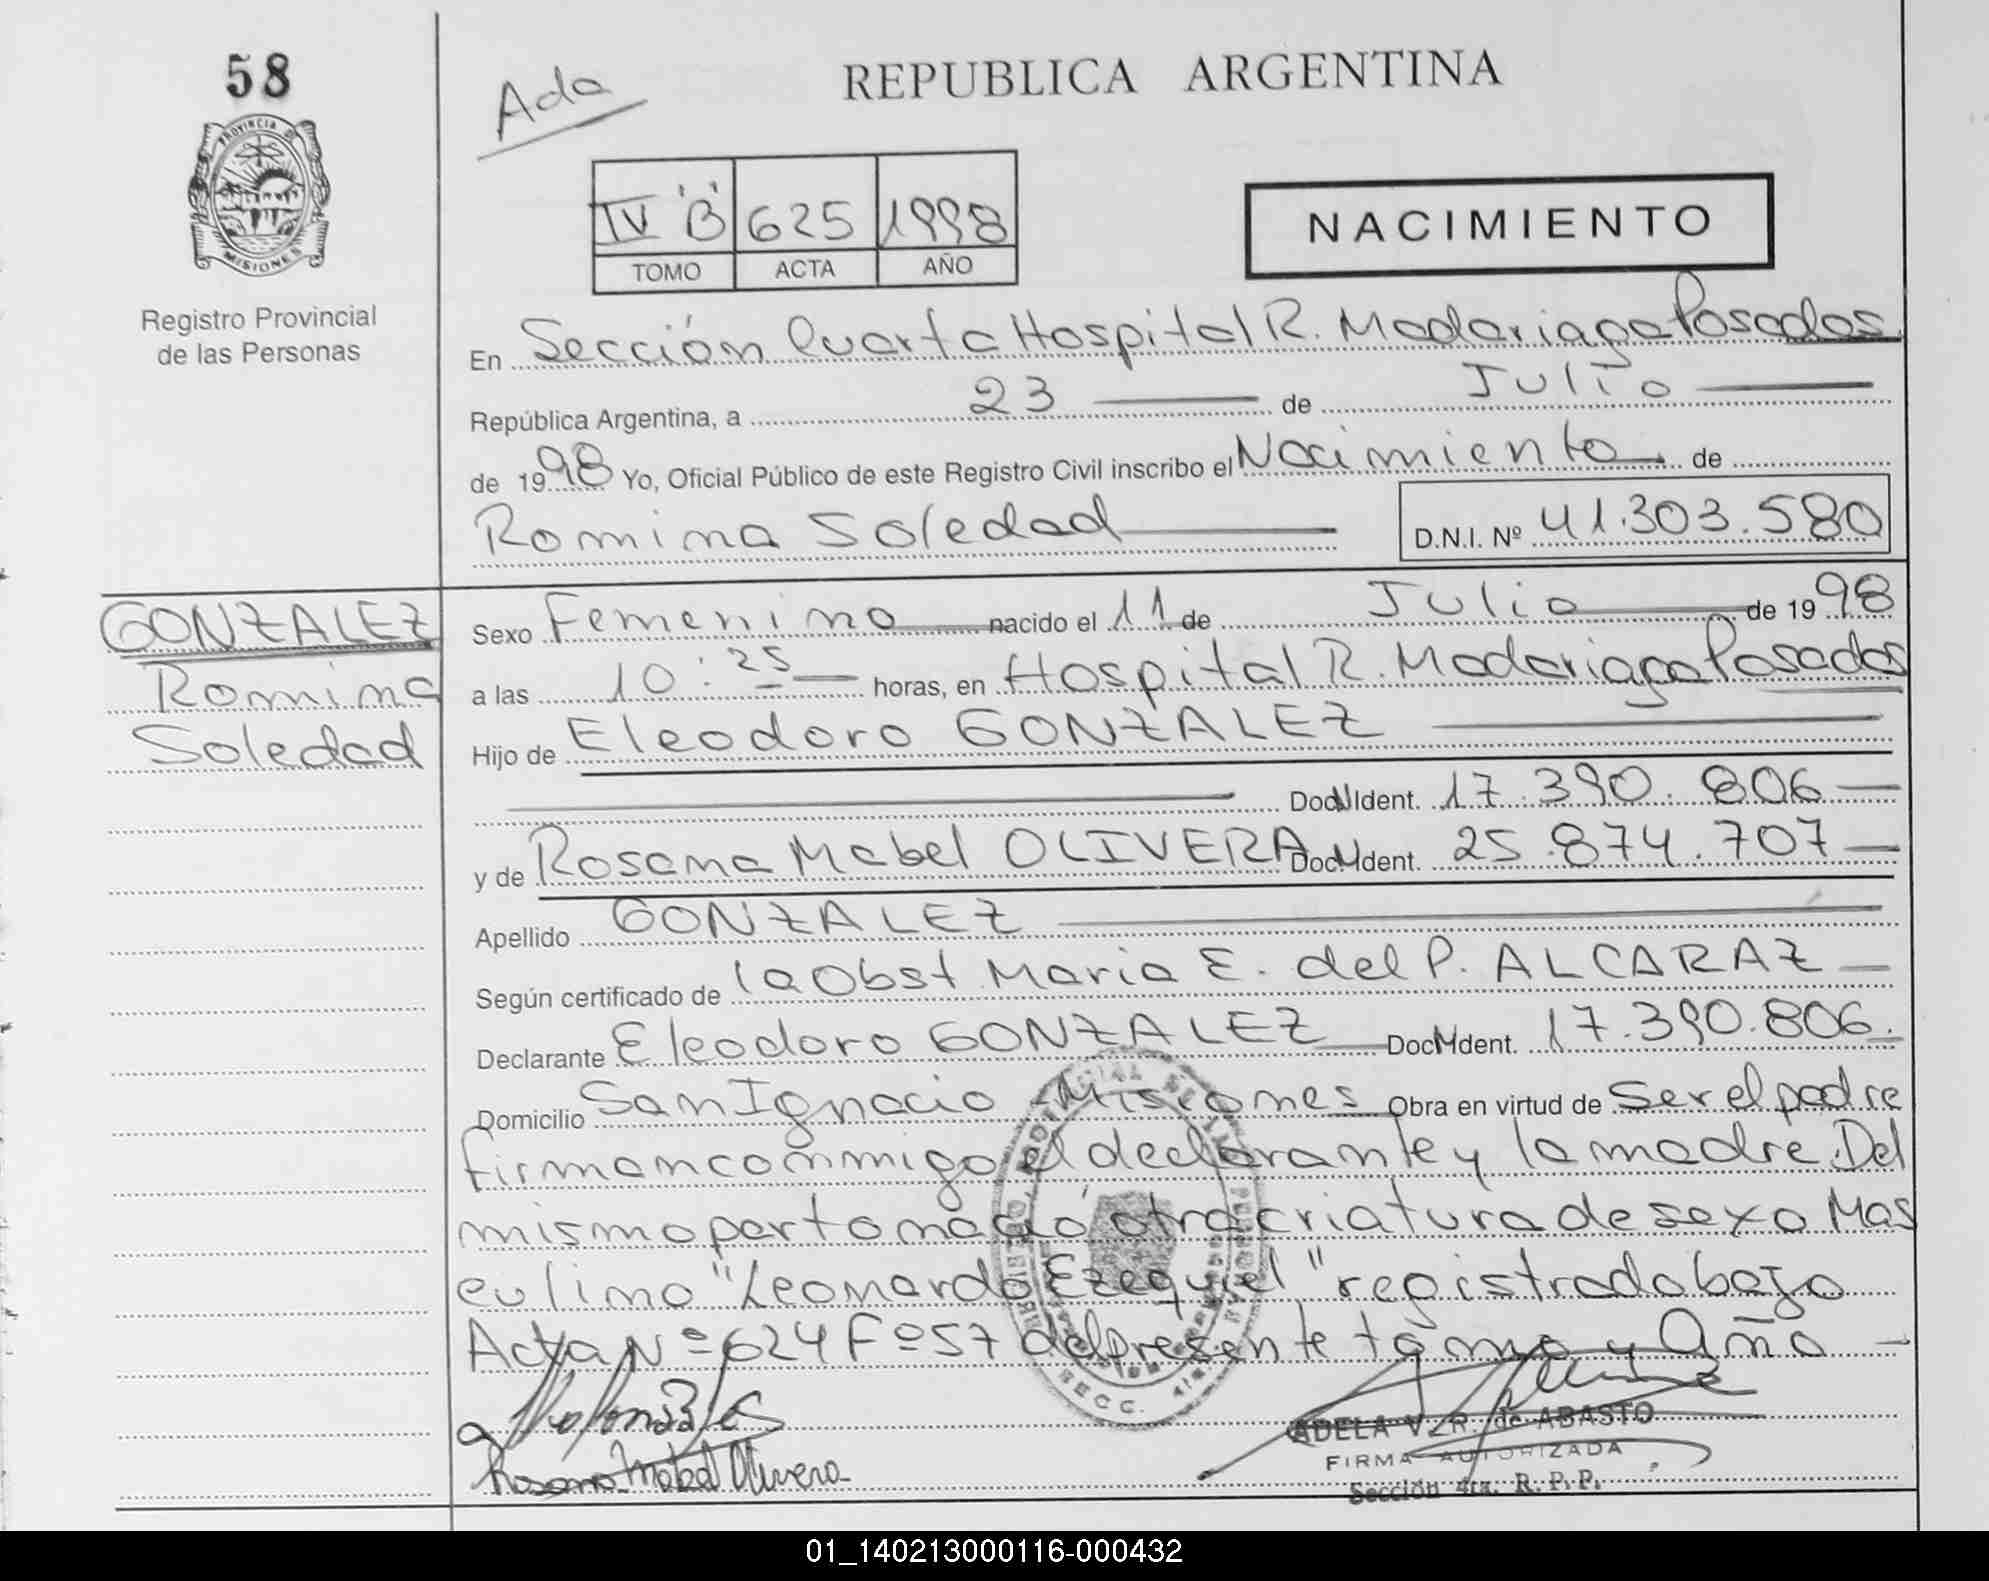 58
Ada
REPUBLICA ARGENTINA
PROVINCIA DE MISIONES
IV "B" 625 1998
TOMO ACTA AÑO
NACIMIENTO
Registro Provincial
de las Personas
En Sección Cuarta Hospital R. Madariaga Posadas
República Argentina, a 23 de Julio
de 1998 Yo, Oficial Público de este Registro Civil inscribo el Nacimiento de
Romina Soledad D.N.I. Nº 41.303.580
GONZALEZ
Romina
Soledad
Sexo Femenino nacido el 11 de Julio de 1998
a las 10:25 horas, en Hospital R. Madariaga Posadas
Hijo de Eleodoro GONZALEZ
Doc. Ident. 17.390.806
y de Rosana Mabel OLIVERA Doc. Ident. 25.874.707
Apellido GONZALEZ
Según certificado de la Obst Maria E. del P. ALCARAZ
Declarante Eleodoro GONZALEZ Doc. Ident. 17.390.806.
Domicilio San Ignacio Misiones Obra en virtud de Ser el padre
firman conmigo el declarante y la madre. Del
mismo parto nació otra criatura de sexo Mas
culino "Leonardo Ezequiel" registrado bajo
Acta Nº 624 Fº 57 del presente tomo y Año
Rosana Mabel Olivera
ADELA V. R. de ABASTO
FIRMA AUTORIZADA
Sección 4ta. R. P. P.
SECC. 4ta
01_140213000116-000432